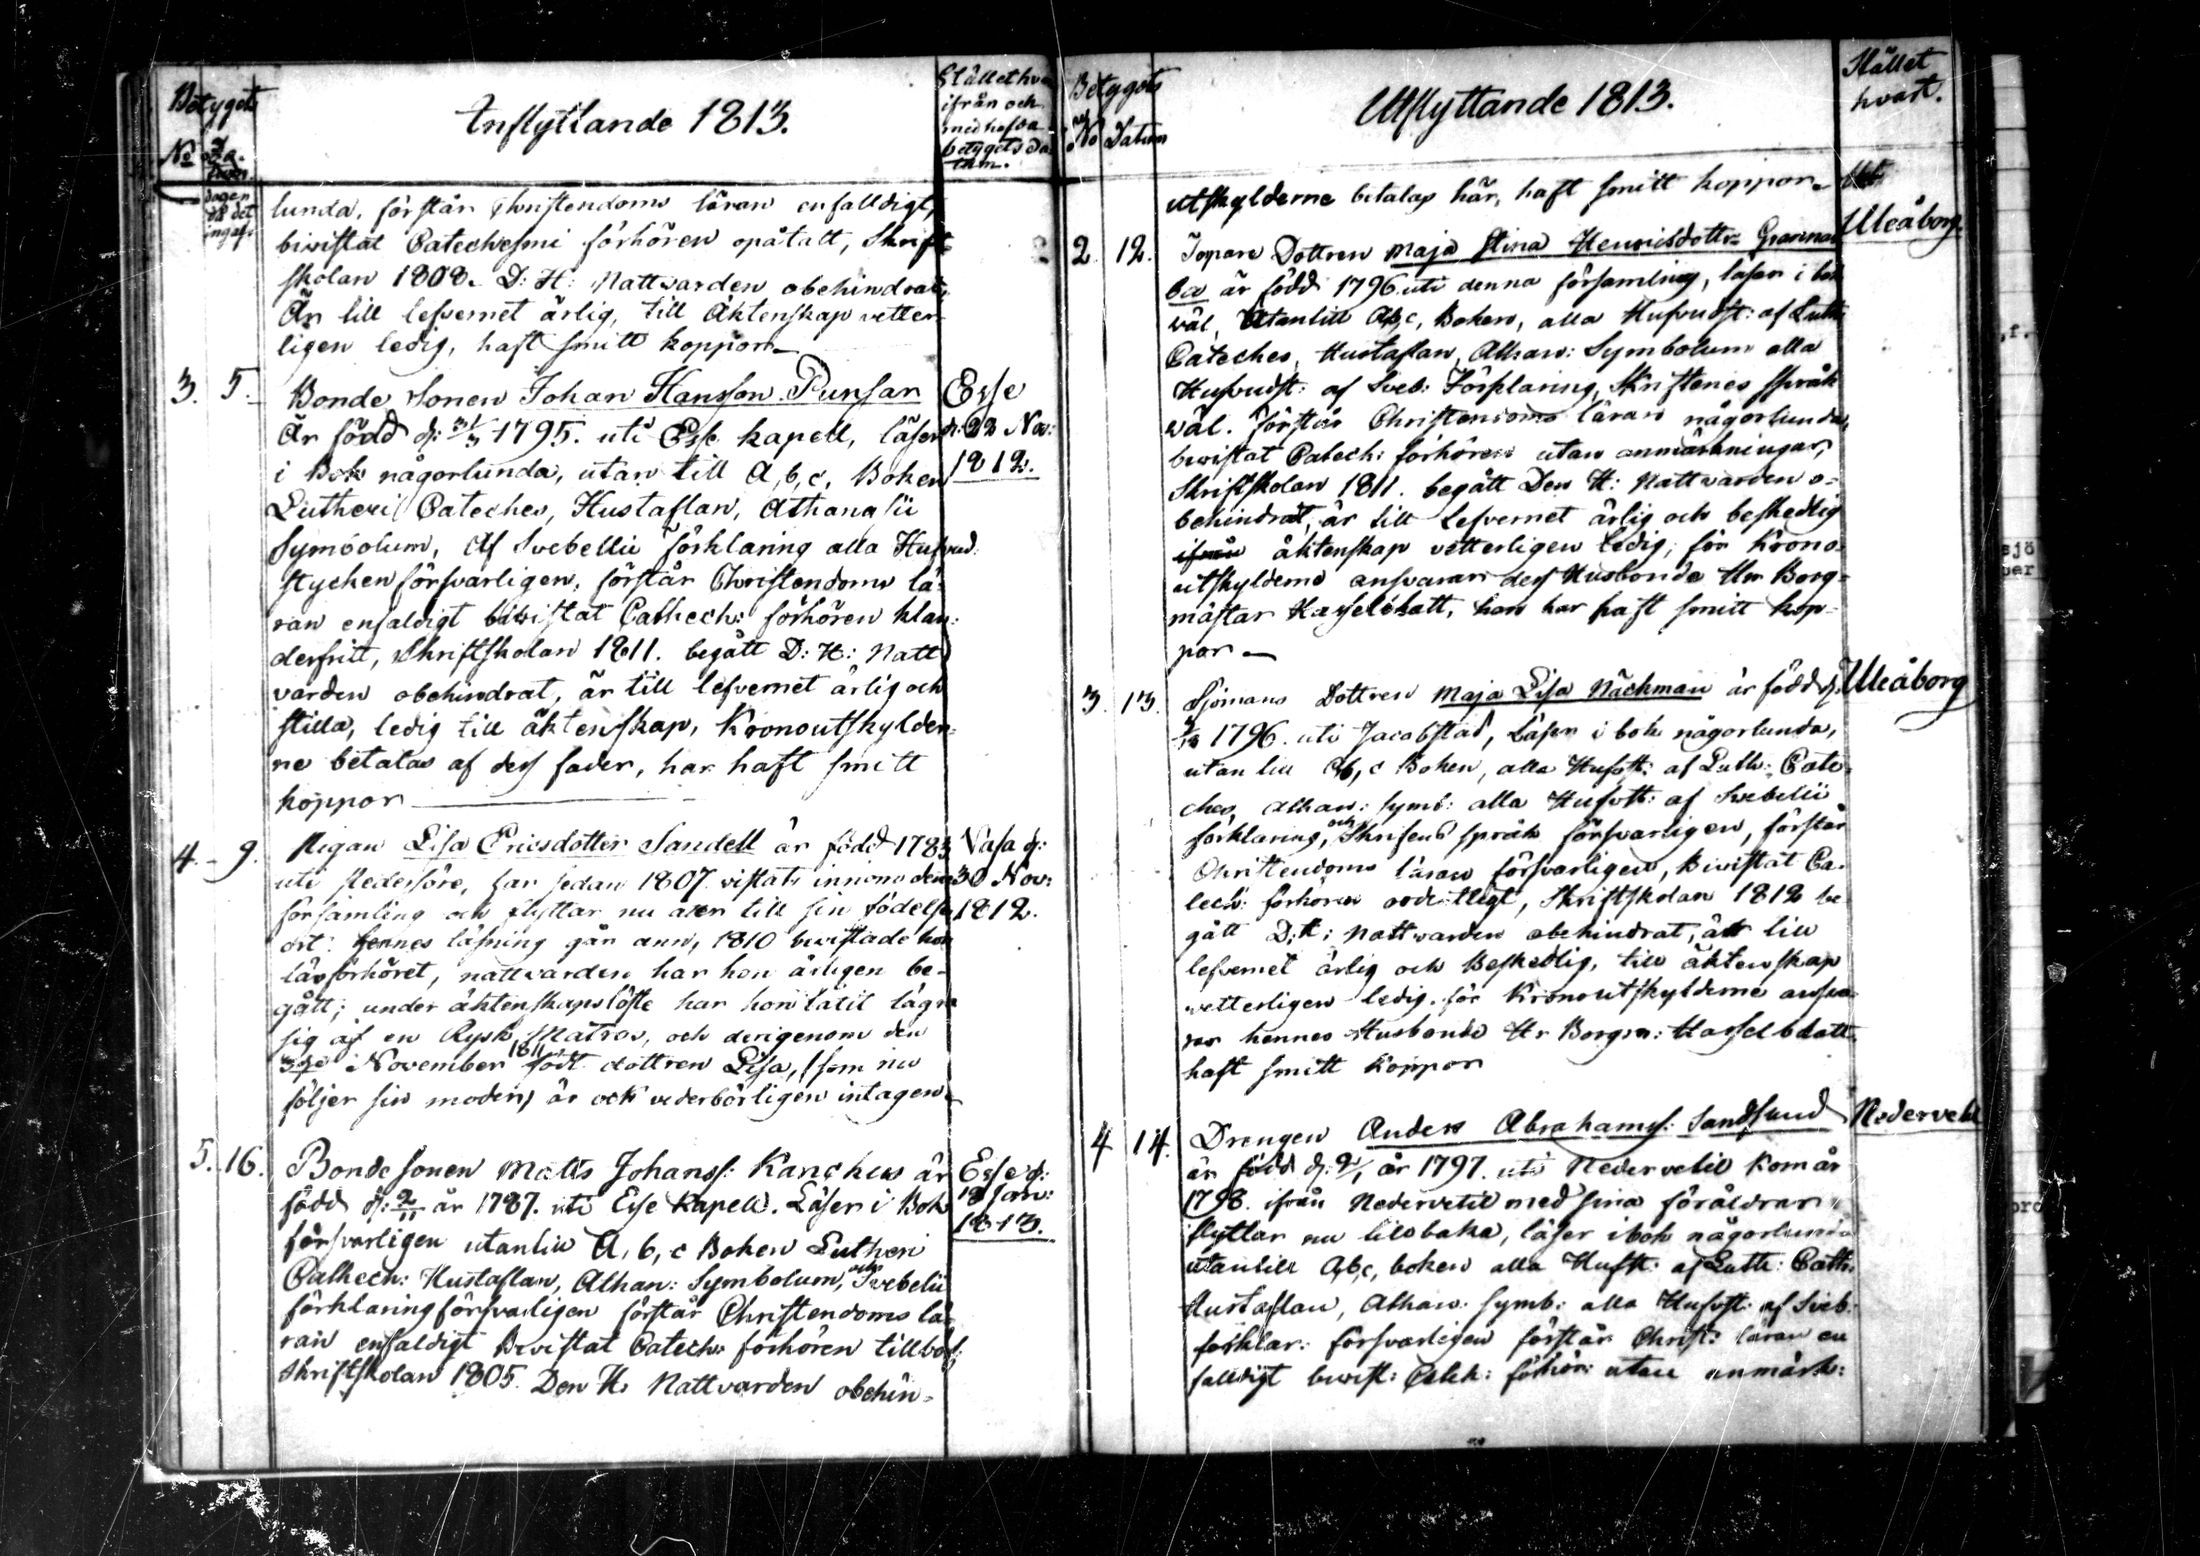 Betygets
No Datum
dagen
då det
ingaf.
Inflyttande 1813.
Stället hvar
ifrån och
medhafda
betygets da
tum.
lunda, förstår Christendoms läran enfalldigt,
biwistat Catechesmi förhören opåtalt, Skrift
skolan 1808. D: H: Nattvarden obehindrat,
Är till lefvernet ärlig, till Äktenskap vetter
ligen ledig, haft smitt koppor
3. 5. Bonde Sonen Johan Hansson Punsar
Är född d: 31/3 1795. uti Esse kapell, läser
i Bok någorlunda, utan till A, b, c, Boken
Lutheri Cateches, Hustaflan, Athanasii
Symbolum, Af Svebellii förklaring alla Hufvud
stycken försvarligen, förstår Christendoms lä
ran enfaldigt biwistat Cathech: förhören klan
derfritt, Skriftskolan 1811. begått D: H: Natt
varden obehindrat, är till lefvernet ärlig och
stilla, ledig till äktenskap, Kronoutskylder
ne betalas af dess fader, har haft smitt
koppor
Esse
d: 22 Nov:
1812.
4. 9. Pigan Lisa Ericsdotter Sandell är född 1783
uti Pedersöre, har sedan 1807 vistats innom denna
församling och flyttar nu åter till sin födelse
ort: hennes läsning går ann, 1810 bewistade hon
läsförhöret, nattvarden har hon årligen be-
gått; under äktenskapslöfte har hon låtit lägra
sig af en Rysk Matros, och derigenom den
November 1811 födt dottren Lisa, (som nu
följer sin moder) är ock vederbörligen intagen
Vasa d:
30 Nov:
1812.
5. 16. Bonde sonen Matts Johanss: Kanckus är
född d: 2/11 år 1787. uti Esse Kapell. Läser i Bok
försvarligen utantill A, b, c Boken Lutheri
Cathech: Hustaflan, Athan: Symbolum, och Svebelii
förklaring försvarligen förstår Christendoms lä
ran enfaldigt Bevistat Catech: förhören
Skriftskolan 1805. Den H: Nattvarden obehin-
Esse d:
Jan:
1813.
Betygets
No Datum
Utflyttande 1813.
Stället
hvart.
utskylderne betalas här, haft smitt koppor
2. 12. Dottren Maja Stina Henricsdotter
är född 1796 uti denna församling, läser i bok
väl, Utantill Abc, Boken, alla Hufvudst: af Luth:
Cateches, Hustaflan, Athan: Symbolum alla
Hufvudst: af Sveb: Förklaring, Skriftenes språk
wäl. Förstår Christendoms läran någorlunda,
bewistat Catech: förhören utan anmärkningar,
Skriftskolan 1811. begått Den H: Nattvarden o-
behindrat, är till Lefvernet ärlig och beskedlig
ifrån äktenskap vetterligen ledig, för Krono-
utskylderne ansvarar dess Husbonde Herr Borg-
mästar Hasselblatt, hon har haft smitt kop-
por
Uleåborg.
3. 13. Sjömans Dottren Maja Lisa Näckman är född d:
1796. uti Jacobstad, Läser i bok någorlunda,
utan till Ab, c Boken, alla Hufvst: af Luth: Cate
ches, Athan: symb: alla Hufvst: af Svebelii
förklaring, och Skriftens språk försvarligen, förstår
Christendoms läran försvarligen, Bivistat Ca-
tech: förhören ordentligt, Skriftskolan 1812 be
gått D: H: Nattvarden obehindrat, är till
lefvernet ärlig och Beskedlig, till äktenskap
vetterligen ledig. för Kronoutskylderne ansva-
rar hennes Husbonde Hr Borgm: Hasselblatt
haft smitt koppor
Uleåborg
4 14. Drengen Anders Abrahams: Sandsund
är född d: år 1797. uti Nedervetil kom år
1798. ifrån Nedervetil med sina föräldrar
flyttar nu tillbaka, läser i bok någorlunda
utantill Abc, boken alla Hufst: af Luth: Cath:
Hustaflan, Athan: symb: alla Hufvst: af Sveb:
förklar: försvarligen förstår Christ: läran en
falldigt bewist: Catek: förhör: utan anmärk:
Nedervetil